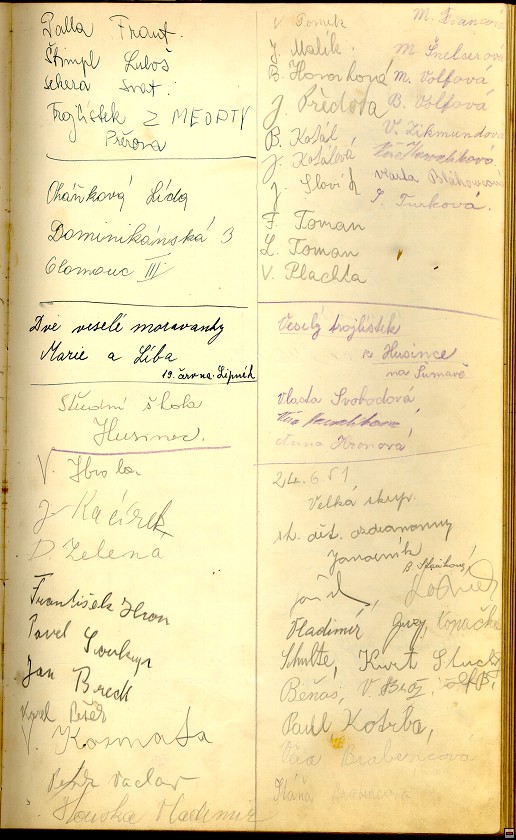 Palla Frant.
Štimpl Luboš
Sekera Svat.
Trojlístek z MEOPTY
Přerova
Chaňková Lída
Dominikánská 3
Olomouc III
Dvě veselé moravanky
Marie a Líba
19. června. Lipník
Střední škola
Husinec.
V.
J. Kačírek
D. Zelená
František Hron
Pavel Soukup
Jan Brech
Karel
V. Kosmata
Petr Vaclav
Houska Vladimir
V. Tomek
J. Malík
B. Honorková
J. Předota
B. Kotál
J. Kotálová
J.
F. Toman
L. Toman
V. Plachta
M.
M. Šnelserová
M. Volfová
B. Volfová
V. Zikmundová
Vlasta
J. Turková.
Veselý trojlístek
z Husince
na Šumavě
Vlasta Svobodová
24.6.51
Velká skup.
st. dět. ozdravovny
Janovník
Vladimír Juraj, Kopačka
Schulte, Kurt
Beňáš, V. Brož,
Paul Kotrba,
Věra Brabencová
Brabencová